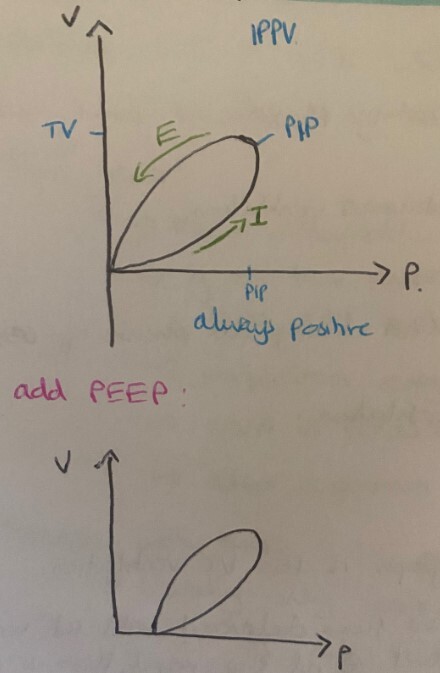 V
IPPV
TV
E
PIP
I
P.
PIP
always positive
add PEEP:
V
P